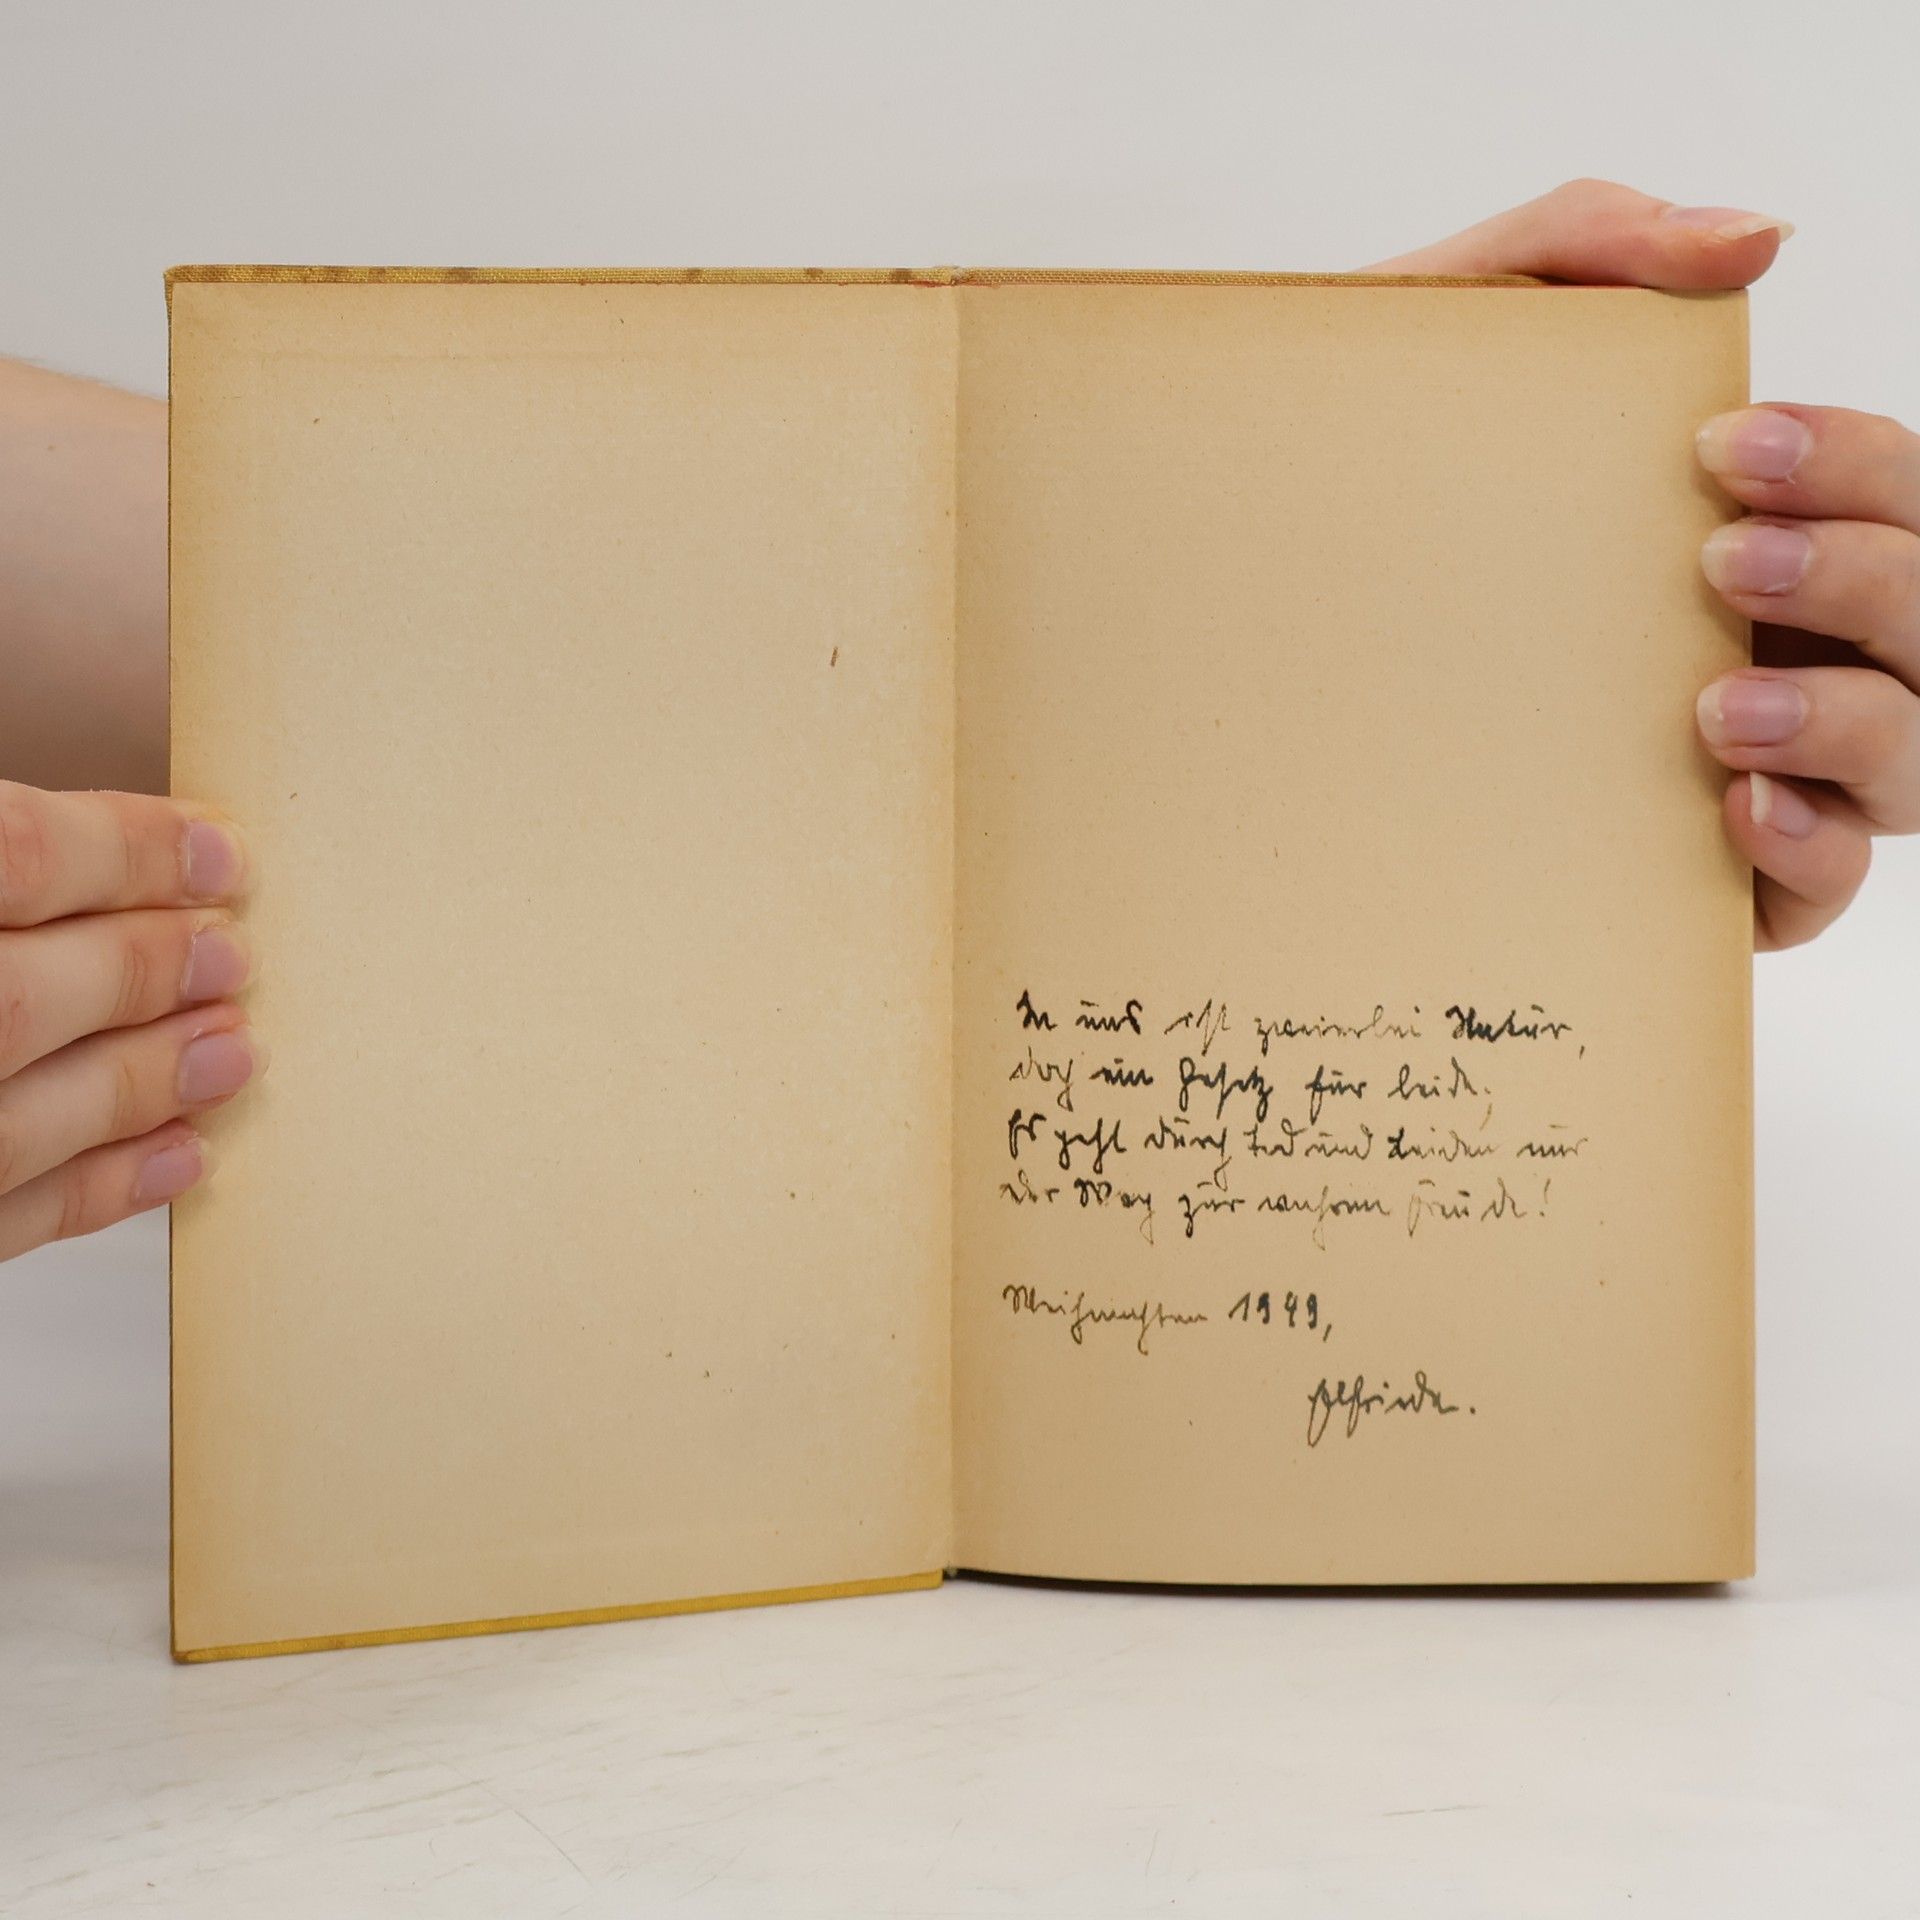 In uns ist zweierlei Natur,
doch ein Gesetz für beide.
Es geht durch Tod und Leiden nur
der Weg zur wahren Freude!
Weihnachten 1949,
Elfriede.